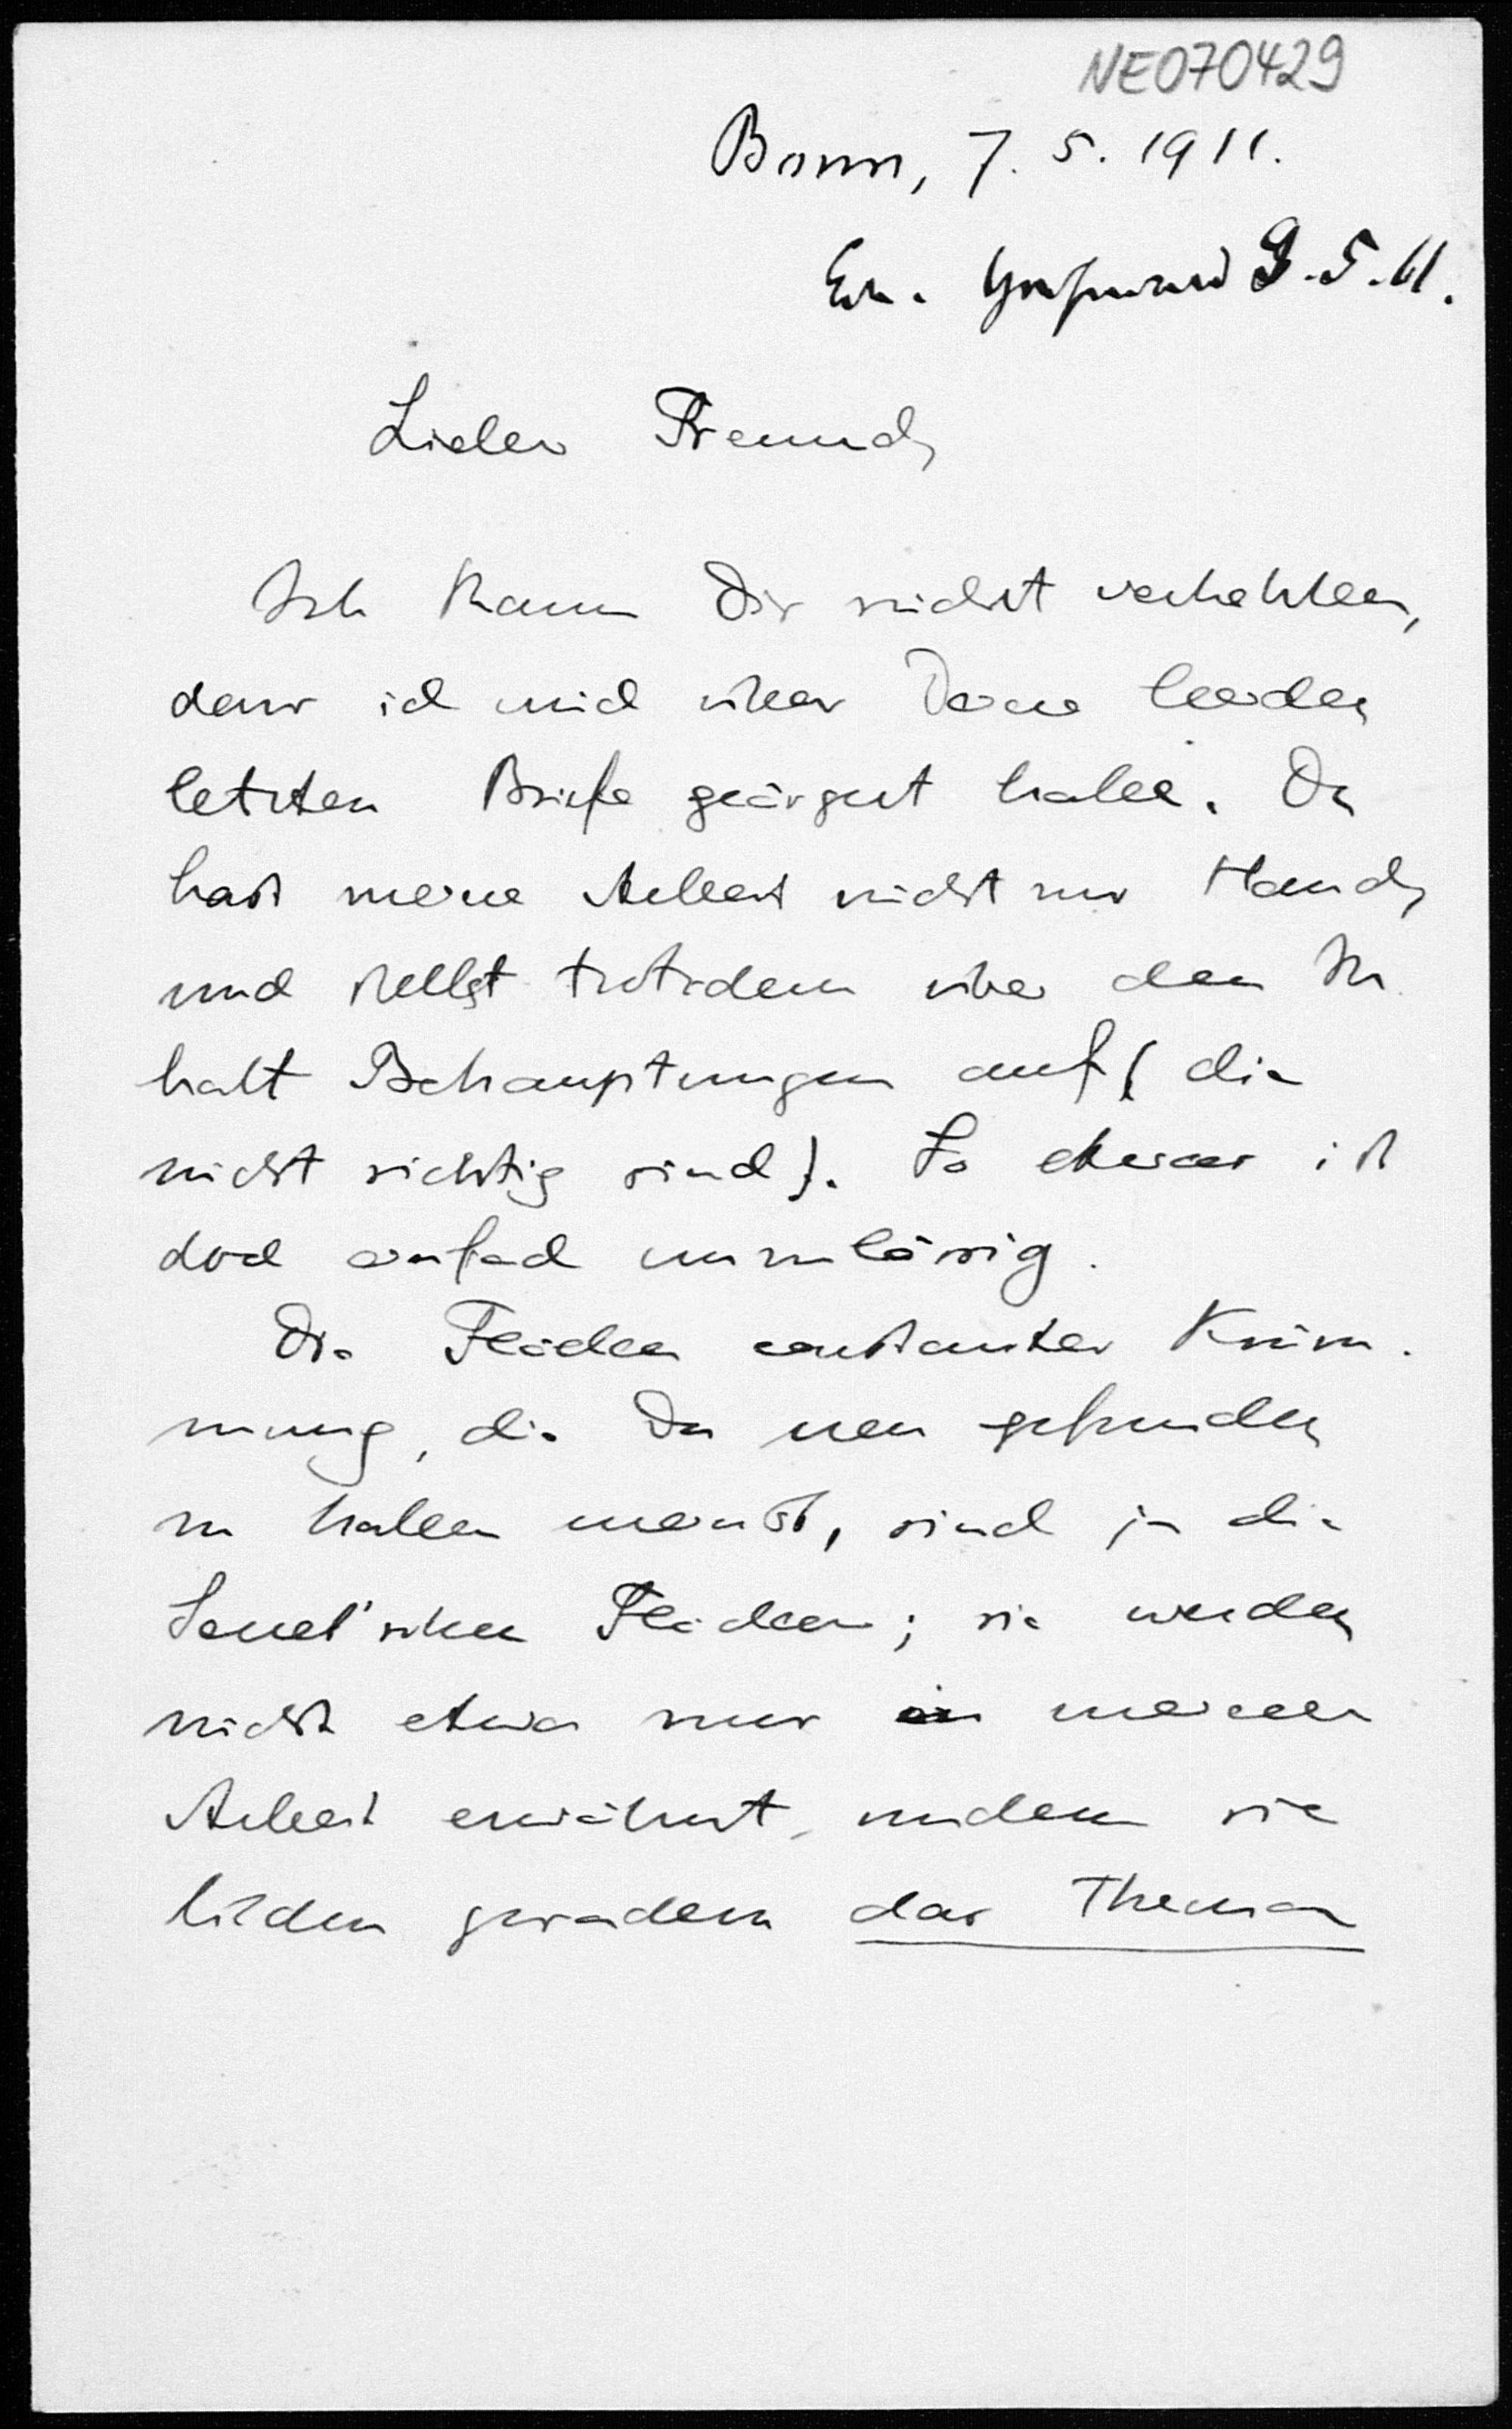 NE070429
Bonn, 7. 5. 1911.
9. 5. 11.
Lieber Freund,
Ich kann Dir nicht verhehlen,
dass ich mich über Deine beiden
letzten Briefe geärgert habe. Du
hast meine Arbeit nicht zur Hand,
und stellst trotzdem über den In-
halt Behauptungen auf (die
nicht richtig sind). So etwas ist
doch einfach unzulässig.
Die Flächen constanter Krüm-
mung, die Du neu gefunden
zu haben meinst, sind ja die
schen Flächen; sie werden
nicht etwa nur in meiner
Arbeit erwähnt, sondern sie
bilden geradezu das Thema